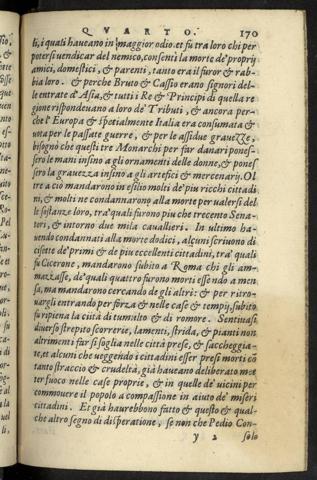 QVARTO. 170
li, i quali haueano in maggior odio. et fu tra loro chi per
potersi vendicar del nemico, consentì la morte de' proprij
amici, domestici, & parenti, tanto era il furor & rab
bia loro. & perche Bruto & Cassio erano signori del-
le entrate d'Asia, & tutti i Re & Principi di quella re
gione rispondeuano a loro de' Tributi, & ancora per-
che l'Europa & spetialmente Italia era consumata &
vota per le passate guerre, & per le assidue grauezze,
bisognò che questi tre Monarchi per far danari ponес-
sero le mani insino a gli ornamenti delle donne, & pones
sero la grauezza insino a gli artefici & mercenarij. Ol
tre a ciò mandarono in esilio molti de' piu ricchi cittadi
ni, & molti ne condannarono alla morte per ualersi del
le sostanze loro, tra' quali furono piu che trecento Sena-
tori, & intorno due mila cauallieri. In ultimo ha-
uendo condennati alla morte dodici, alcuni scriuono di
cisette de' primi & de piu eccellenti cittadini, tra' quali
fu Cicerone, mandarono subito a Roma chi gli am-
mazzasse, de' quali quattro furono morti essendo a men
sa, ma mandarono cercando de gli altri: & per ritro-
uargli entrando per forza & nelle case & tempij, subito
fu ripiena la città di tumulto & di romore. Sentiuasi
diuerso strepito scorrerie, lamenti, strida, & pianti non
altrimenti fur si soglia nelle città prese, & saccheggia-
te, et alcuni che ueggendo i cittadini esser presi morti cō
tanto straccio & crudeltà, già haueano deliberato met
ter fuoco nelle case proprie, & in quelle de' uicini per
commouere il popolo a compassione in aiuto de' miseri
cittadini. Et già haurebbono fatto & questo & qual-
che altro segno di disperatione, se non che Pedio Con-
y 2 solo